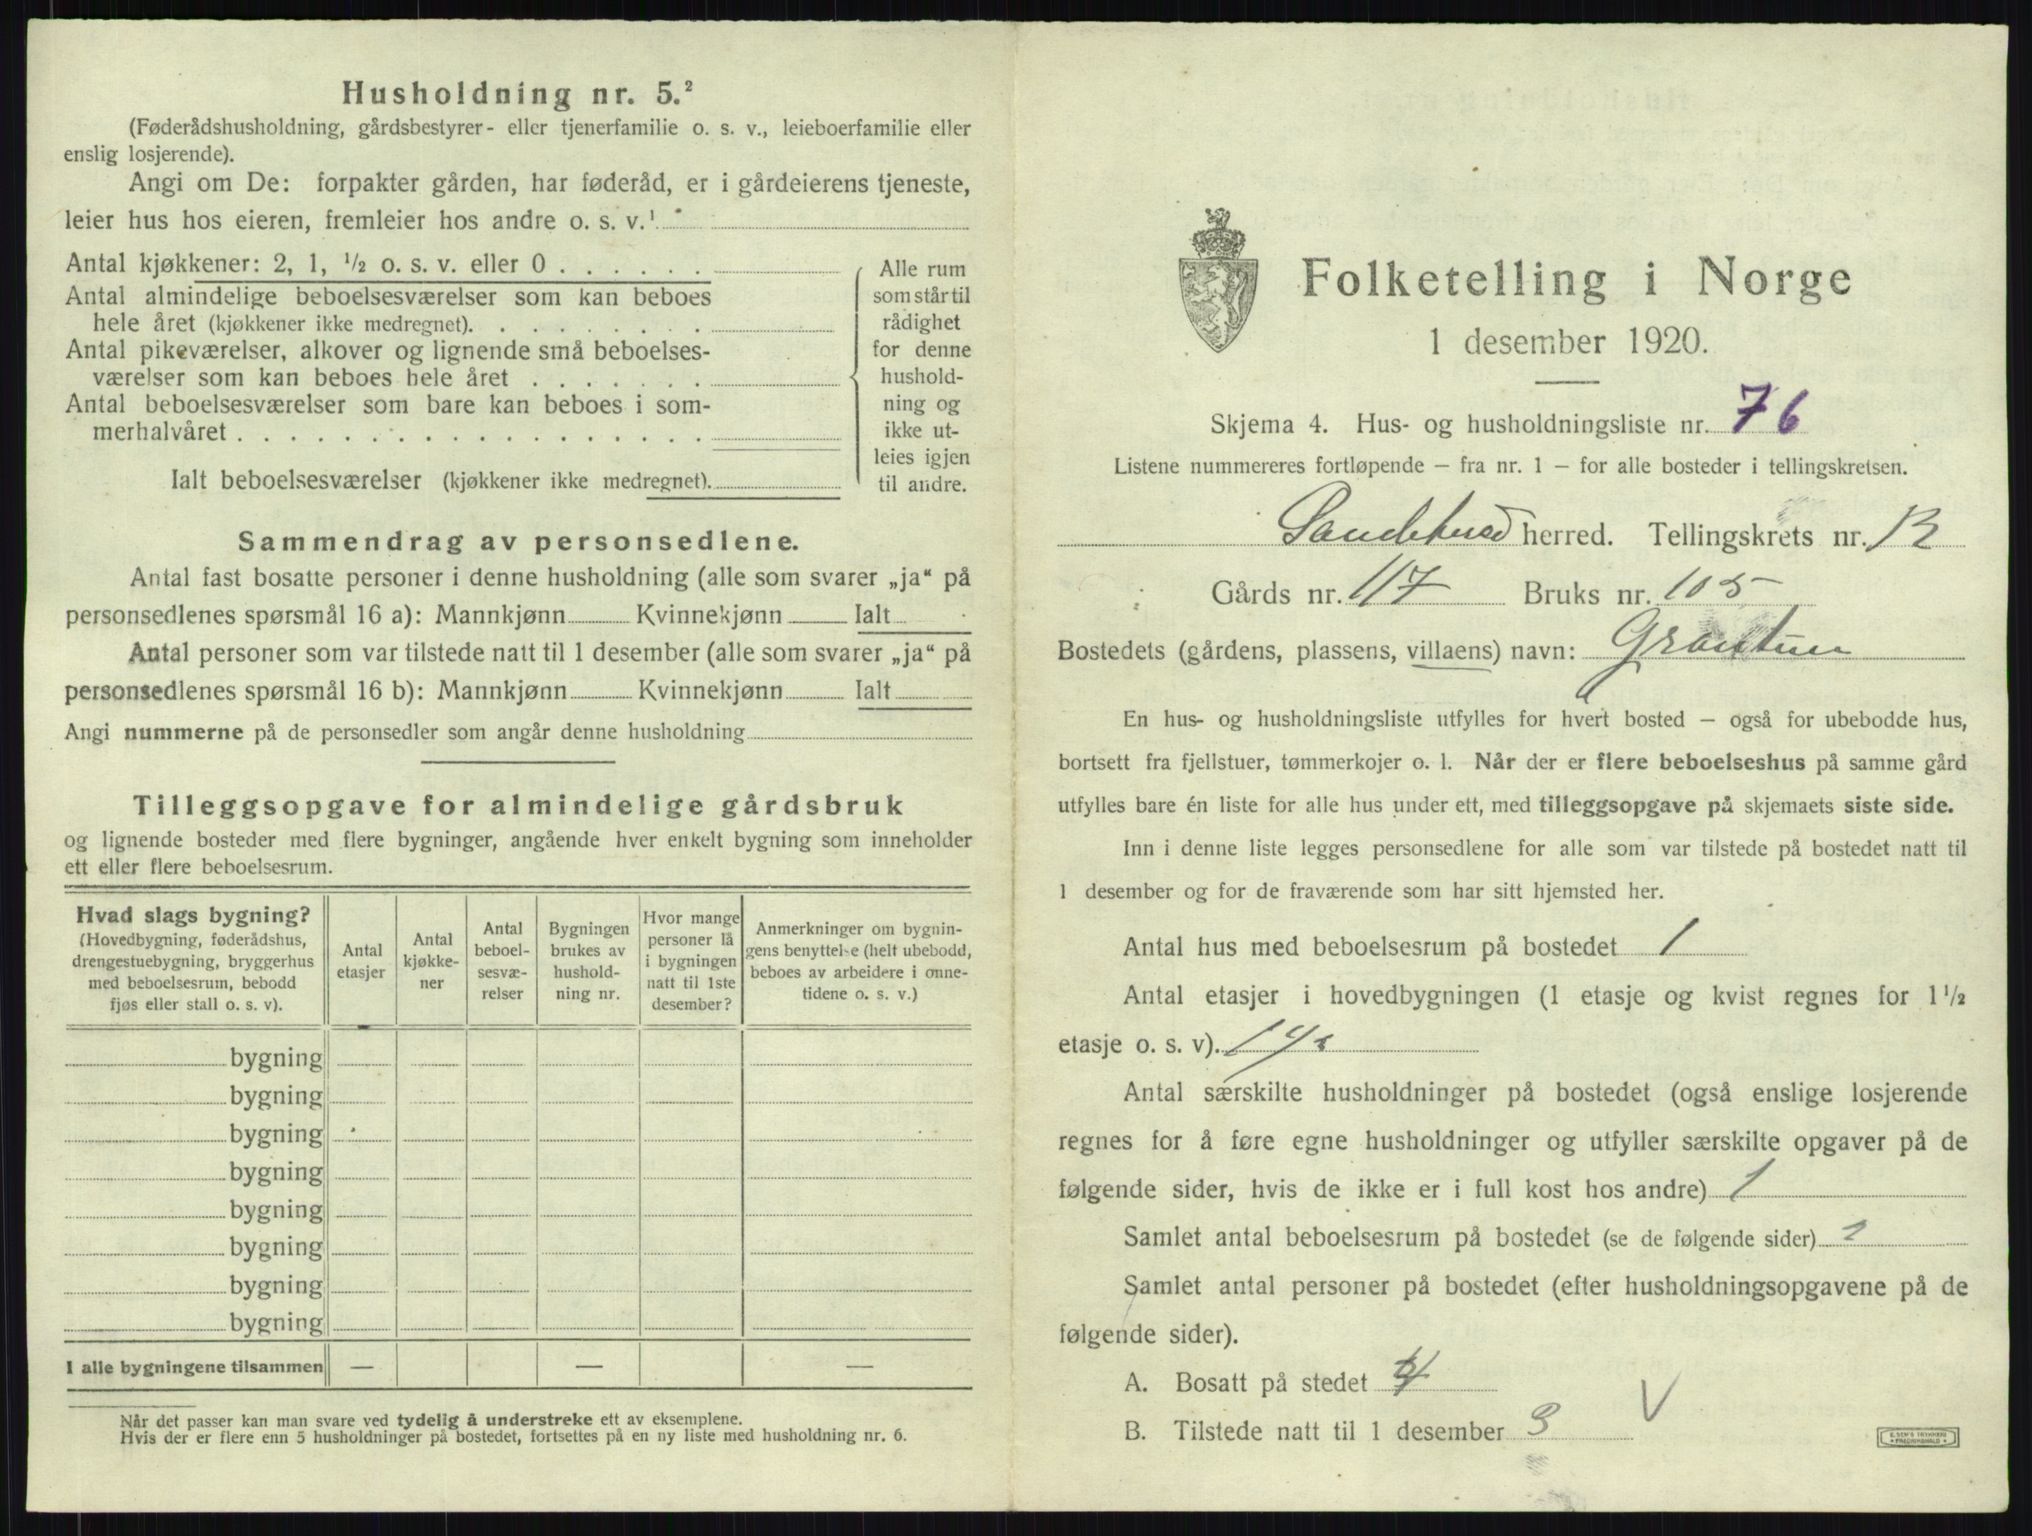 Husholdning nr. 5.²
(Føderådshusholdning, gårdsbestyrer- eller tjenerfamilie o. s. v., leieboerfamilie eller
enslig losjerende).
Angi om De: forpakter gården, har føderåd, er i gårdeierens tjeneste,
leier hus hos eieren, fremleier hos andre o. s. v.¹
Antal kjøkkener: 2, 1, ½ o. s. v. eller 0
Antal almindelige beboelsesværelser som kan beboes
hele året (kjøkkener ikke medregnet).
Antal pikeværelser, alkover og lignende små beboelses-
værelser som kan beboes hele året
Antal beboelsesværelser som bare kan beboes i som-
merhalvåret
Ialt beboelsesværelser (kjøkkener ikke medregnet).
Alle rum
som står til
rådighet
for denne
hushold-
ning og
ikke ut-
leies igjen
til andre.
Sammendrag av personsedlene.
Antal fast bosatte personer i denne husholdning (alle som svarer „ja“ på
personsedlenes spørsmål 16 a): Mannkjønn Kvinnekjønn Ialt
Antal personer som var tilstede natt til 1 desember (alle som svarer „ja“ på
personsedlenes spørsmål 16 b): Mannkjønn Kvinnekjønn Ialt
Angi nummerne på de personsedler som angår denne husholdning
Tilleggsopgave for almindelige gårdsbruk
og lignende bosteder med flere bygninger, angående hver enkelt bygning som inneholder
ett eller flere beboelsesrum.
Hvad slags bygning?
(Hovedbygning, føderådshus,
drengestuebygning, bryggerhus
med beboelsesrum, bebodd
fjøs eller stall o. s. v).
Antal
etasjer
Antal
kjøkke-
ner
Antal
beboel-
sesvæ-
relser
Bygningen
brukes av
hushold-
ning nr.
Hvor mange
personer lå
i bygningen
natt til 1ste
desember?
Anmerkninger om bygnin-
gens benyttelse (helt ubebodd,
beboes av arbeidere i onne-
tidene o. s. v.)
bygning
bygning
bygning
bygning
bygning
bygning
bygning
bygning
I alle bygningene tilsammen — — —
Når det passer kan man svare ved tydelig å understreke ett av eksemplene.
Hvis der er flere enn 5 husholdninger på bostedet, fortsettes på en ny liste med husholdning nr. 6.
Folketelling i Norge
1 desember 1920.
Skjema 4. Hus- og husholdningsliste nr. 76
Listene nummereres fortløpende — fra nr. 1 — for alle bosteder i tellingskretsen.
herred. Tellingskrets nr.
Gårds nr. 117 Bruks nr. 105
Bostedets (gårdens, plassens, villaens) navn: Grantun
En hus- og husholdningsliste utfylles for hvert bosted — også for ubebodde hus,
bortsett fra fjellstuer, tømmerkojer o. l. Når der er flere beboelseshus på samme gård
utfylles bare én liste for alle hus under ett, med tilleggsopgave på skjemaets siste side.
Inn i denne liste legges personsedlene for alle som var tilstede på bostedet natt til
1 desember og for de fraværende som har sitt hjemsted her.
Antal hus med beboelsesrum på bostedet 1
Antal etasjer i hovedbygningen (1 etasje og kvist regnes for 1½
etasje o. s. v). 1½
Antal særskilte husholdninger på bostedet (også enslige losjerende
regnes for å føre egne husholdninger og utfyller særskilte opgaver på de
følgende sider, hvis de ikke er i full kost hos andre) 1
Samlet antal beboelsesrum på bostedet (se de følgende sider)
Samlet antal personer på bostedet (efter husholdningsopgavene på de
følgende sider).
A. Bosatt på stedet 4
B. Tilstede natt til 1 desember 3
V